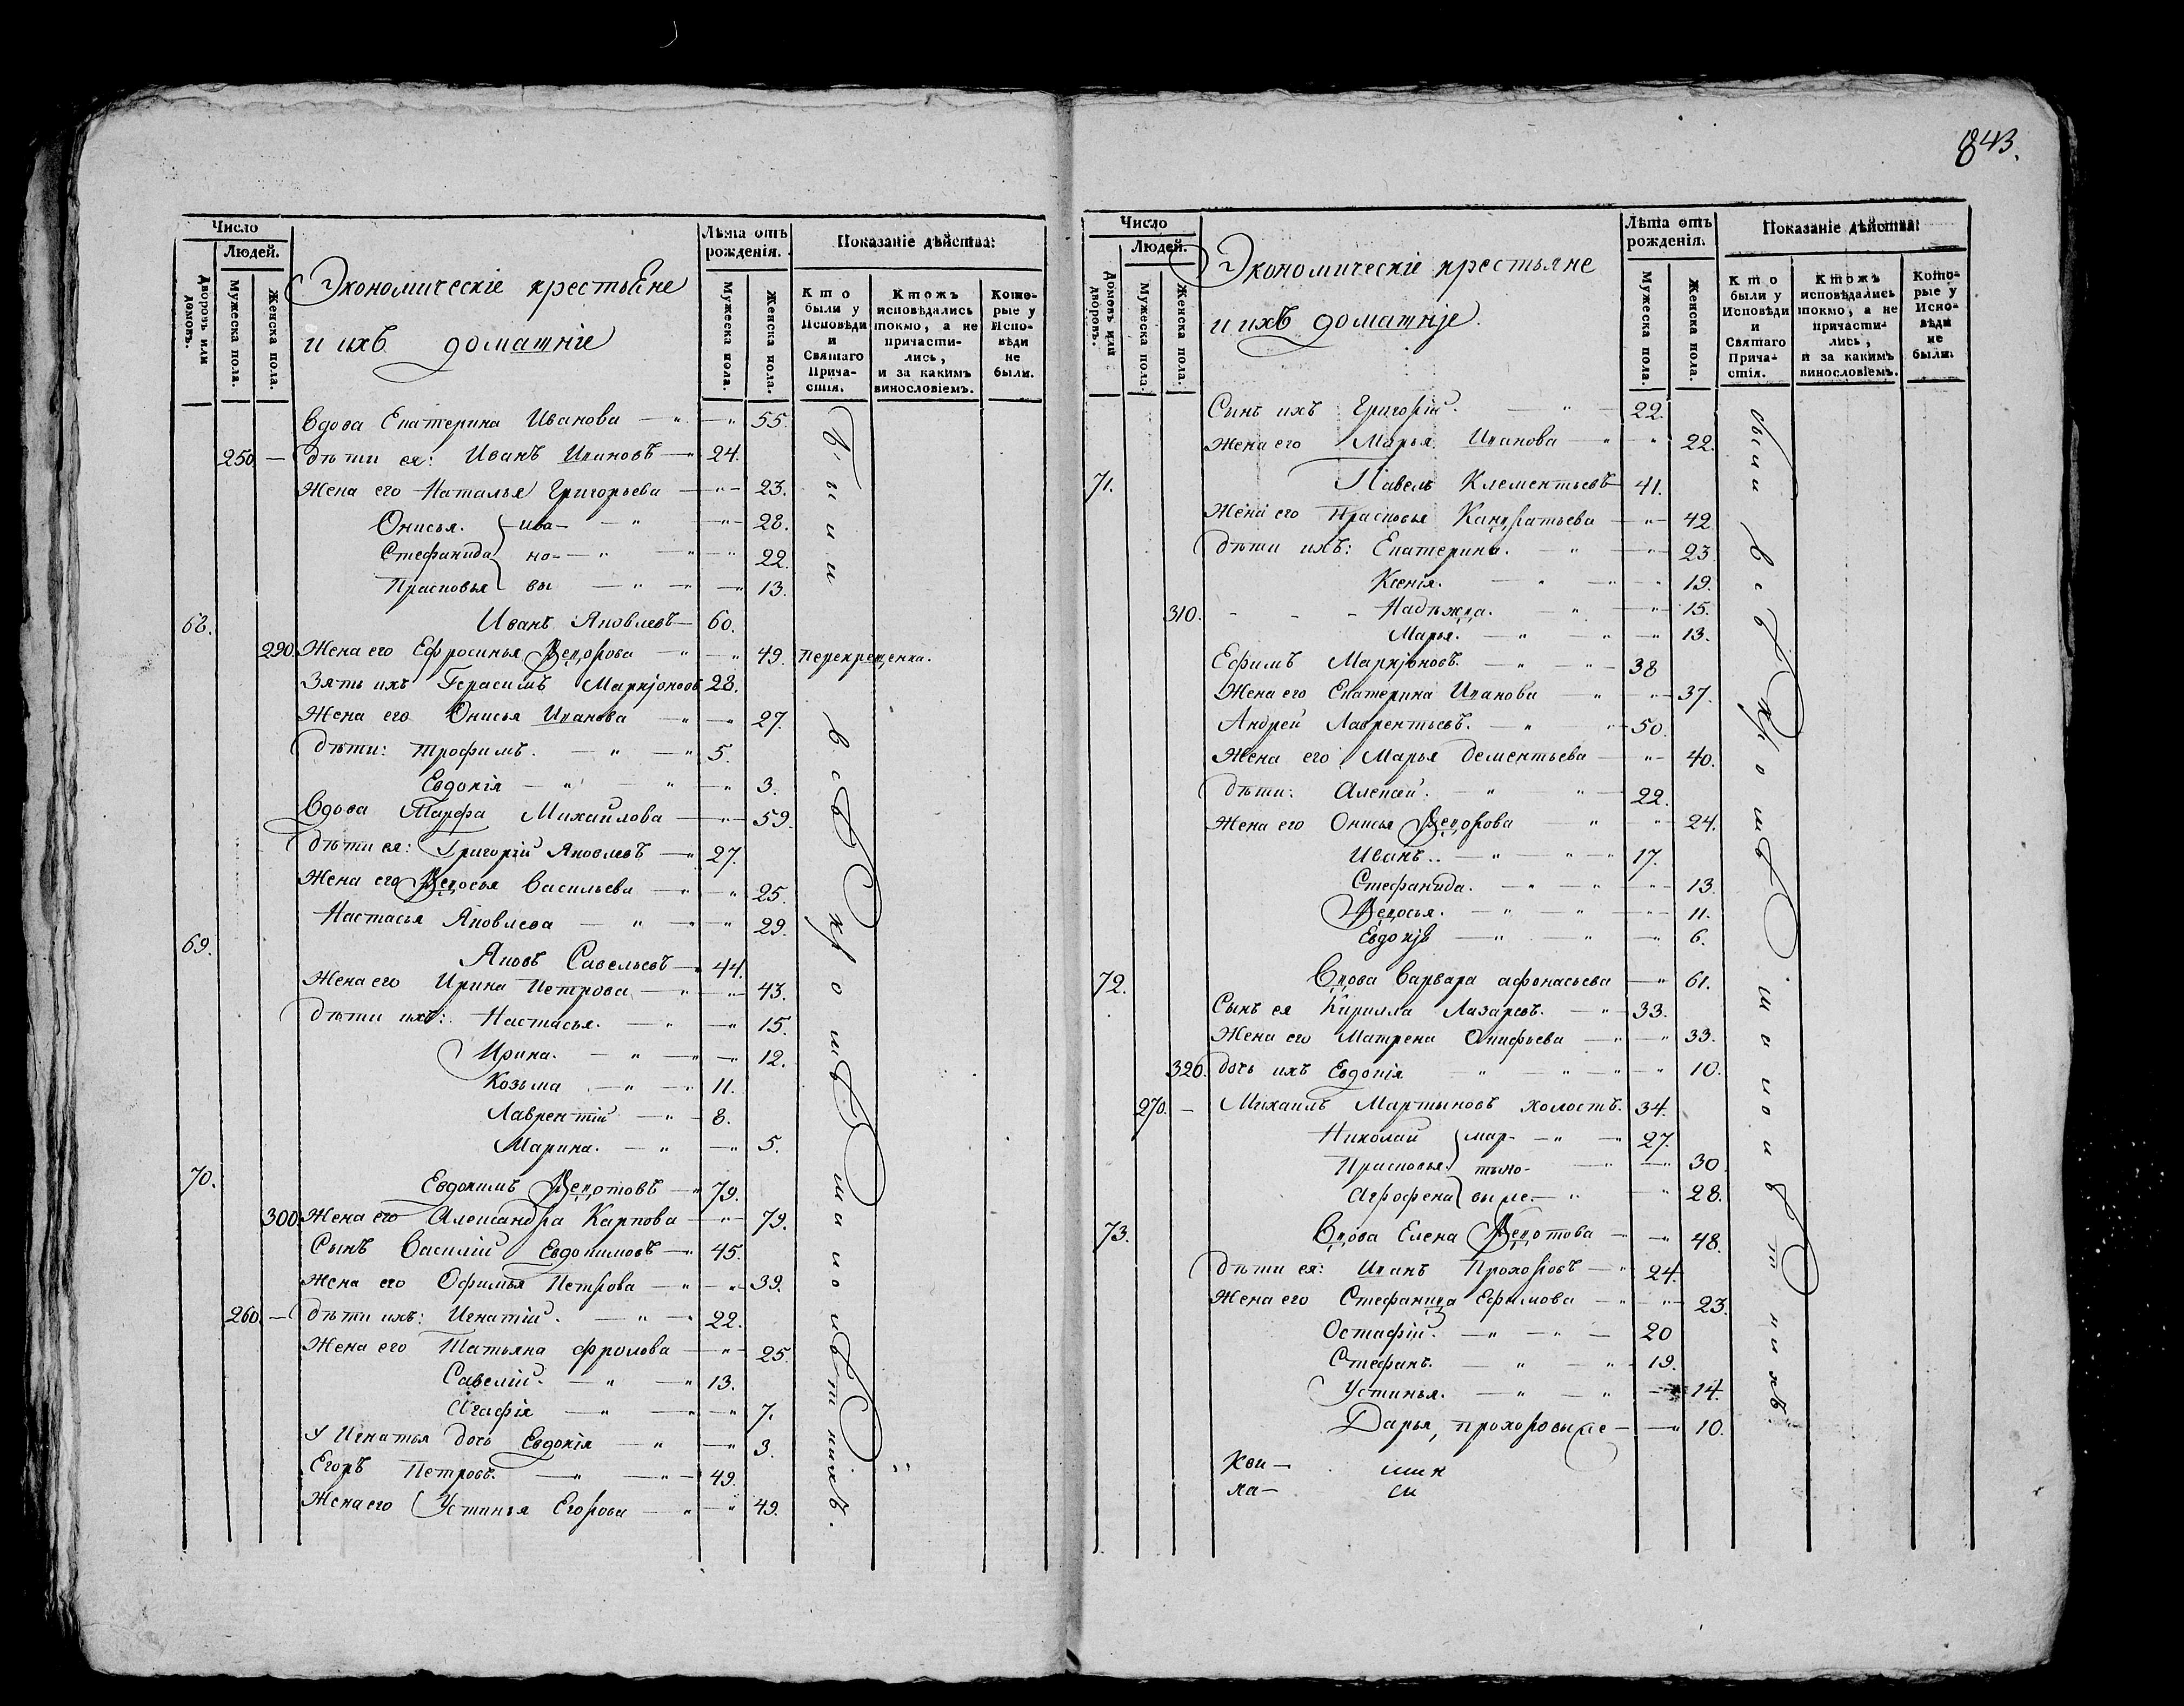 843.
Число
Людей.
Дворовъ или домовъ.
Мужеска пола.
Женска пола.
Экономическіе крестьяне
и ихъ домашніе
Лѣта отъ рожденія.
Мужеска пола.
Женска пола.
Показаніе дѣйства:
Кто были у Исповѣди и Святаго Прича-стія.
Ктожъ исповѣдались токмо, а не причасти-лись, и за какимъ винословіемъ.
Кото-рые у Испо-вѣди не были.
Вдова Екатерина Иванова — " — " 55.
250 — Дѣти ея: Иванъ Ивановъ — " 24.
Жена его Наталья Григорьева — " — 23.
Онисья. } Ива- — " — " — 28.
Стефанида } но- — " — " — " 22.
Прасковья } вы — " — " — " 13.
68. Иванъ Яковлевъ — 60.
290. Жена его Ефросинья Ѳедорова — " — " 49. перекрещенка.
Зять ихъ Герасимъ Маркіоновъ 28.
Жена его Онисья Иванова — " — " 27.
Дѣти: Трофимъ. — " — " 5.
Евдокія — " — " — " 3.
Вдова Марфа Михайлова — " — 59.
Дѣти ея: Григорій Яковлевъ — " 27.
Жена его Ѳедосья Васильева — " — " 25.
Настасья Яковлева — " — " — " 29.
69. Яковъ Савельевъ — " 44.
Жена его Ирина Петрова — " — " — 43.
Дѣти ихъ: Настасья. — " — " 15.
Ирина. — " — " — " 12.
Козьма — " — " 11.
Лаврентій — " — 8.
Марина. — " — " 5.
70. Евдокимъ Ѳедотовъ — " 79.
300. Жена его Александра Карпова — " — 79.
Сынъ Василій Евдокимовъ — " 45.
Жена его Офимья Петрова — " — " — 39.
260. — Дѣти ихъ: Игнатій. — " — " 22.
Жена его Татьяна Фролова — " — 25.
Савелій. — " — " 13.
Агафія — " — " — " 7.
У Игнатья дочь Евдокія — " — " 3.
Егоръ Петровъ. — " — " — 49.
Жена его Устинья Егорова — " — " 49.
Были всѣ кромѣ малолѣтнихъ.
Число
Людей.
Домовъ или дворовъ.
Мужеска пола.
Женска пола.
Экономическіе крестьяне
и ихъ домашніе.
Лѣта отъ рожденія.
Мужеска пола.
Женска пола.
Показаніе дѣйства:
Кто были у Исповѣди и Святаго Прича-стія.
Ктожъ исповѣдались токмо, а не причасти-лись, и за какимъ винословіемъ.
Кото-рые у Испо-вѣди не были.
Сынъ ихъ Григорій. — " — 22.
Жена его Марья Иванова — " — " 22.
71. Павелъ Клементьевъ — 41.
Жена его Прасковья Кандратьева — " — 42
Дѣти ихъ: Екатерина. — " — " — 23
Ксенія. — " — " — " 19.
310. - - - Надѣжда. — " — " 15.
Марья. — " — " — " 13.
Ефимъ Маркіоновъ. — " — " — 38
Жена его Екатерина Иванова — " — " — 37.
Андрей Лаврентьевъ. — " — " — 50.
Жена его Марья Дементьева — " — 40.
Дѣти: Алексѣй. — " — " — 22.
Жена его Онисья Ѳедорова — " — " 24.
Иванъ.. — " — " — " 17.
Стефанида. — " — " — 13.
Ѳедосья. — " — " — " — 11.
Евдокія — " — " — " 6.
72. Вдова Варвара Афонасьева — " 61.
Сынъ ея Кирилла Лазаревъ. — " — 33.
Жена его Матрена Онифьева — " — " 33.
320. Дочь ихъ Евдокія " — " — " — " 10.
270. — Михаилъ Мартыновъ холостъ. 34.
Николай } мар- — " — " 27.
Прасковья } тыно- — " — " 30
Агрофена } вы же. — " — " 28.
73. Вдова Елена Ѳедотова — " — " 48.
Дѣти ея: Иванъ Прохоровъ — " 24.
Жена его Стефанида Ефимова — " — " — 23.
Остафій. — " — " — 20
Стефанъ. — " — " — 19.
Устинья. — " — " — 14.
Дарья, Прохоровы же — — " 10.
были всѣ кромѣ малолѣтнихъ.